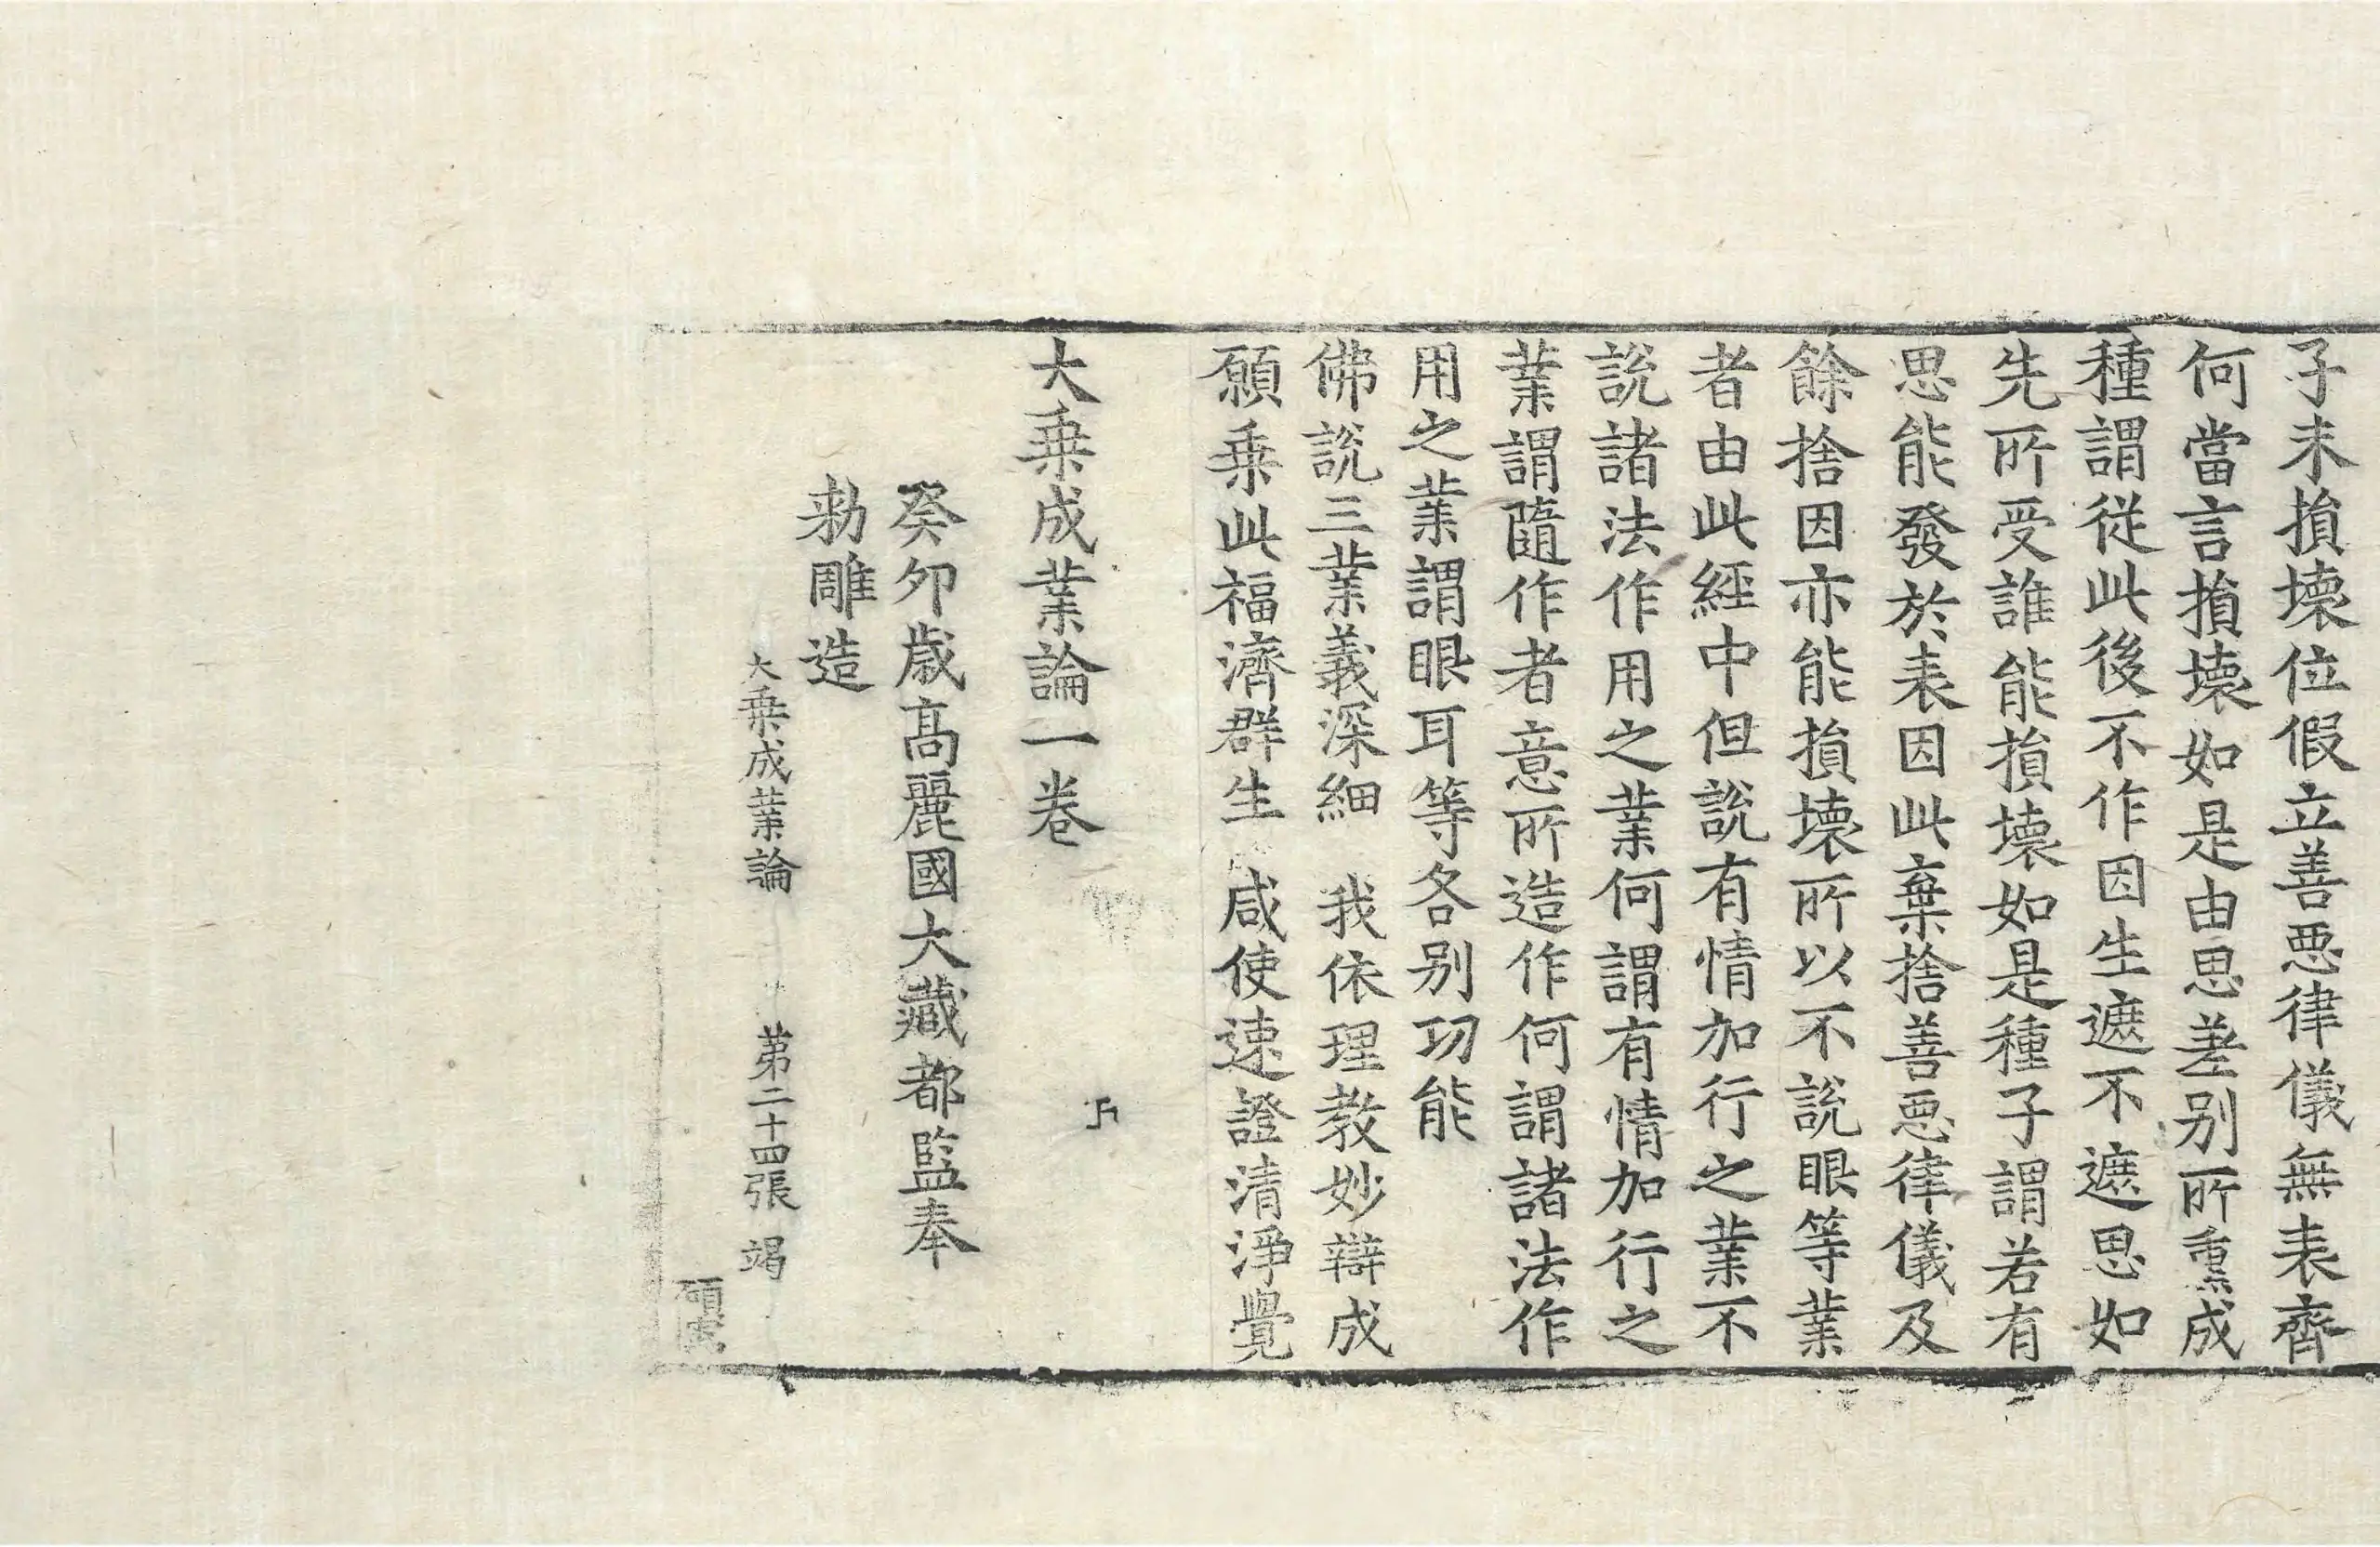 子未損壞位假立善惡律儀無表齊
何當言損壞如是由思差别所熏成
種謂從此後不作因生遮不遮思如
先所受誰能損壞如是種子謂若有
思能發於表因此棄捨善惡律儀及
餘捨因亦能損壞所以不說眼等業
者由此經中但說有情加行之業不
說諸法作用之業何謂有情加行之
業謂隨作者意所造作何謂諸法作
用之業謂眼耳等各别功能
佛說三業義深細　我依理教妙辯成
願乘此福濟群生　咸使速證清淨覺
大乘成業論一卷
癸夘歲高麗國大藏都監奉
勑雕造
大乘成業論　第二十四張　竭